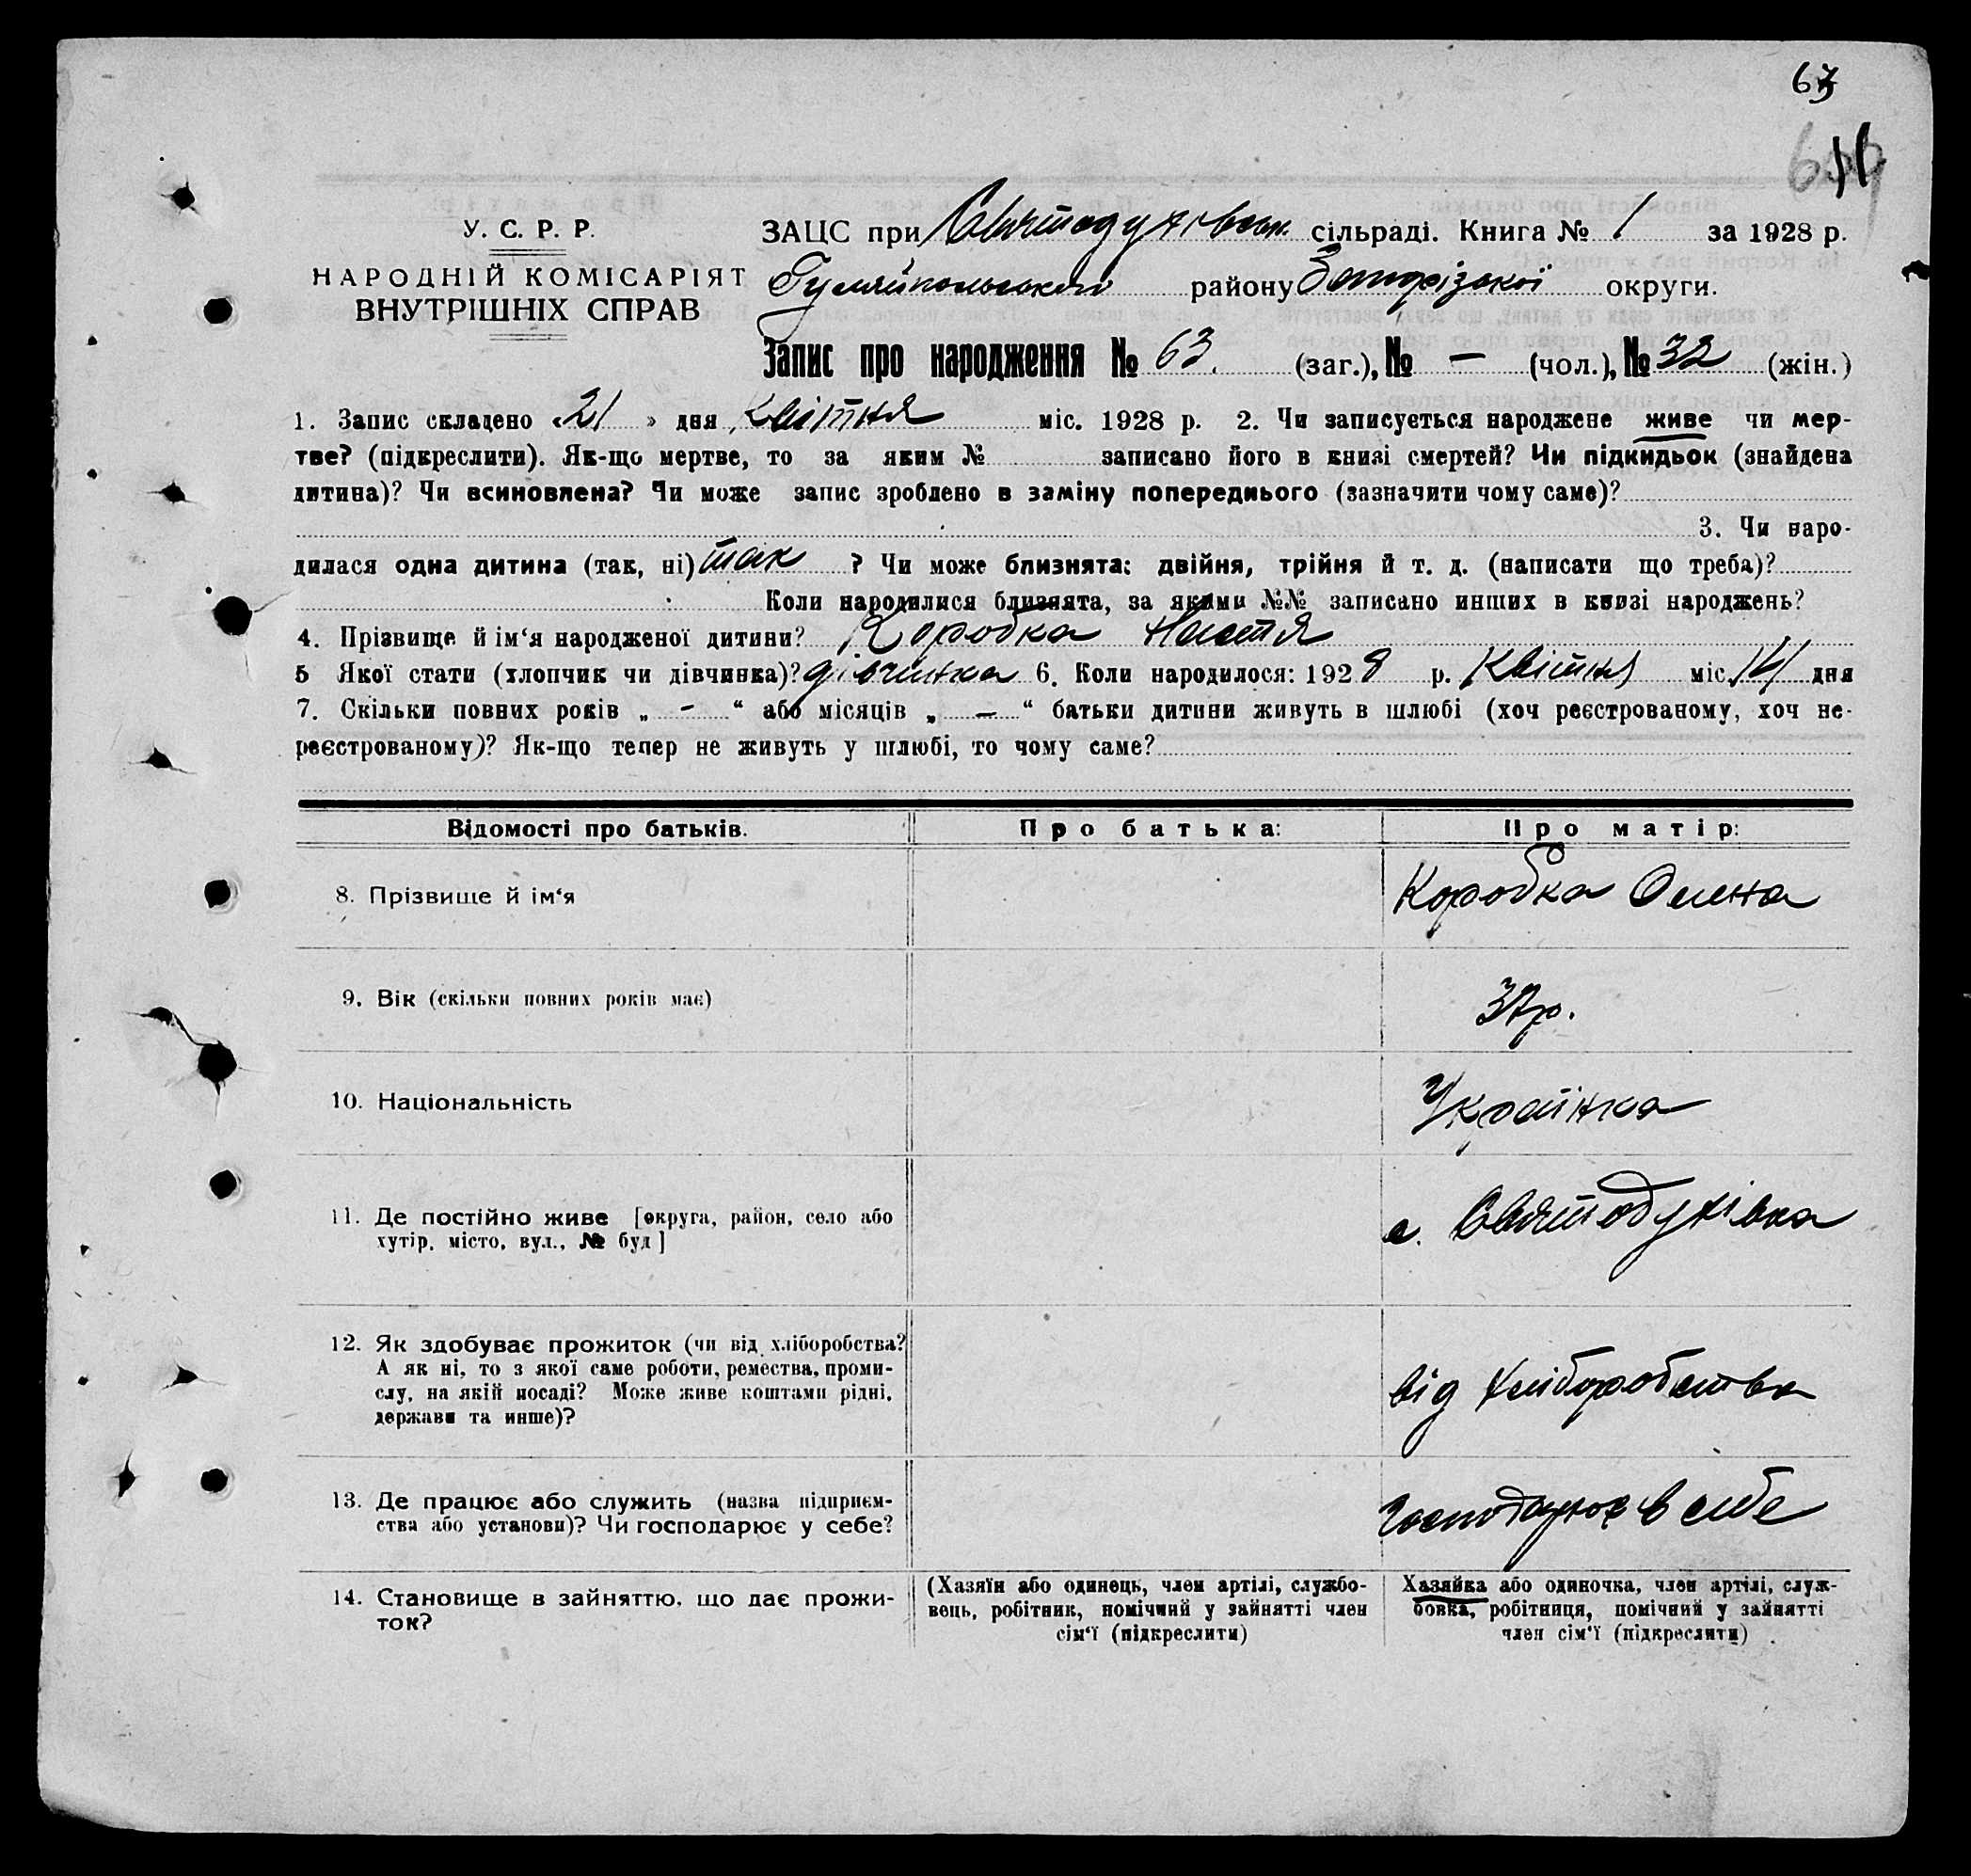 63
У. С. Р. Р.
НАРОДНІЙ КОМІСАРІЯТ
ВНУТРІШНІХ СПРАВ
ЗАЦС при Святодухівськ. сільраді. Книга № 1 за 1928 р.
Гуляйпольського району Запорізької округи.
Запис про народження № 63. (заг.), № — (чол.), № 32 (жін.)
1. Запис складено «21» дня Квітня міс. 1928 р. 2. Чи записується народжене живе чи мер-
тве? (підкреслити). Як-що мертве, то за яким № записано його в книзі смертей? Чи підкидьок (знайдена
дитина)? Чи всиновлена? Чи може запис зроблено в заміну попереднього (зазначити чому саме)?
3. Чи наро-
дилася одна дитина (так, ні) так ? Чи може близнята: двійня, трійня й т. д. (написати що треба)?
Коли народилися близнята, за якими №№ записано инших в книзі народжень?
4. Прізвище й ім‘я народженої дитини? Коробка Настя
5 Якої стати (хлопчик чи дівчинка)? дівчинка 6. Коли народилося: 1928 р. Квітня міс. 14 дня
7. Скільки повних років „ - “ або місяців „ — “ батьки дитини живуть в шлюбі (хоч реєстрованому, хоч не-
реєстрованому)? Як-що тепер не живуть у шлюбі, то чому саме?
Відомості про батьків. Про батька: Про матір:
8. Прізвище й ім‘я Коробка Олена
9. Вік (скільки повних років має) 37р.
10. Національність Українка
11. Де постійно живе [округа, район, село або
хутір, місто, вул., № буд] с. Святодухівка
12. Як здобуває прожиток (чи від хліборобства?
А як ні, то з якої саме роботи, ремества, проми-
слу, на якій посаді? Може живе коштами рідні,
держави та инше)? від хліборобства
13. Де працює або служить (назва підприєм-
ства або установи)? Чи господарює у себе? господарює в себе
14. Становище в зайняттю, що дає прожи-
ток?
(Хазяїн або одинець, член артілі, службо-
вець, робітник, помічний у зайнятті член
сім‘ї (підкреслити)
Хазяйка або одиночка, член артілі, служ-
бовка, робітниця, помічний у зайнятті
член сім‘ї (підкреслити)